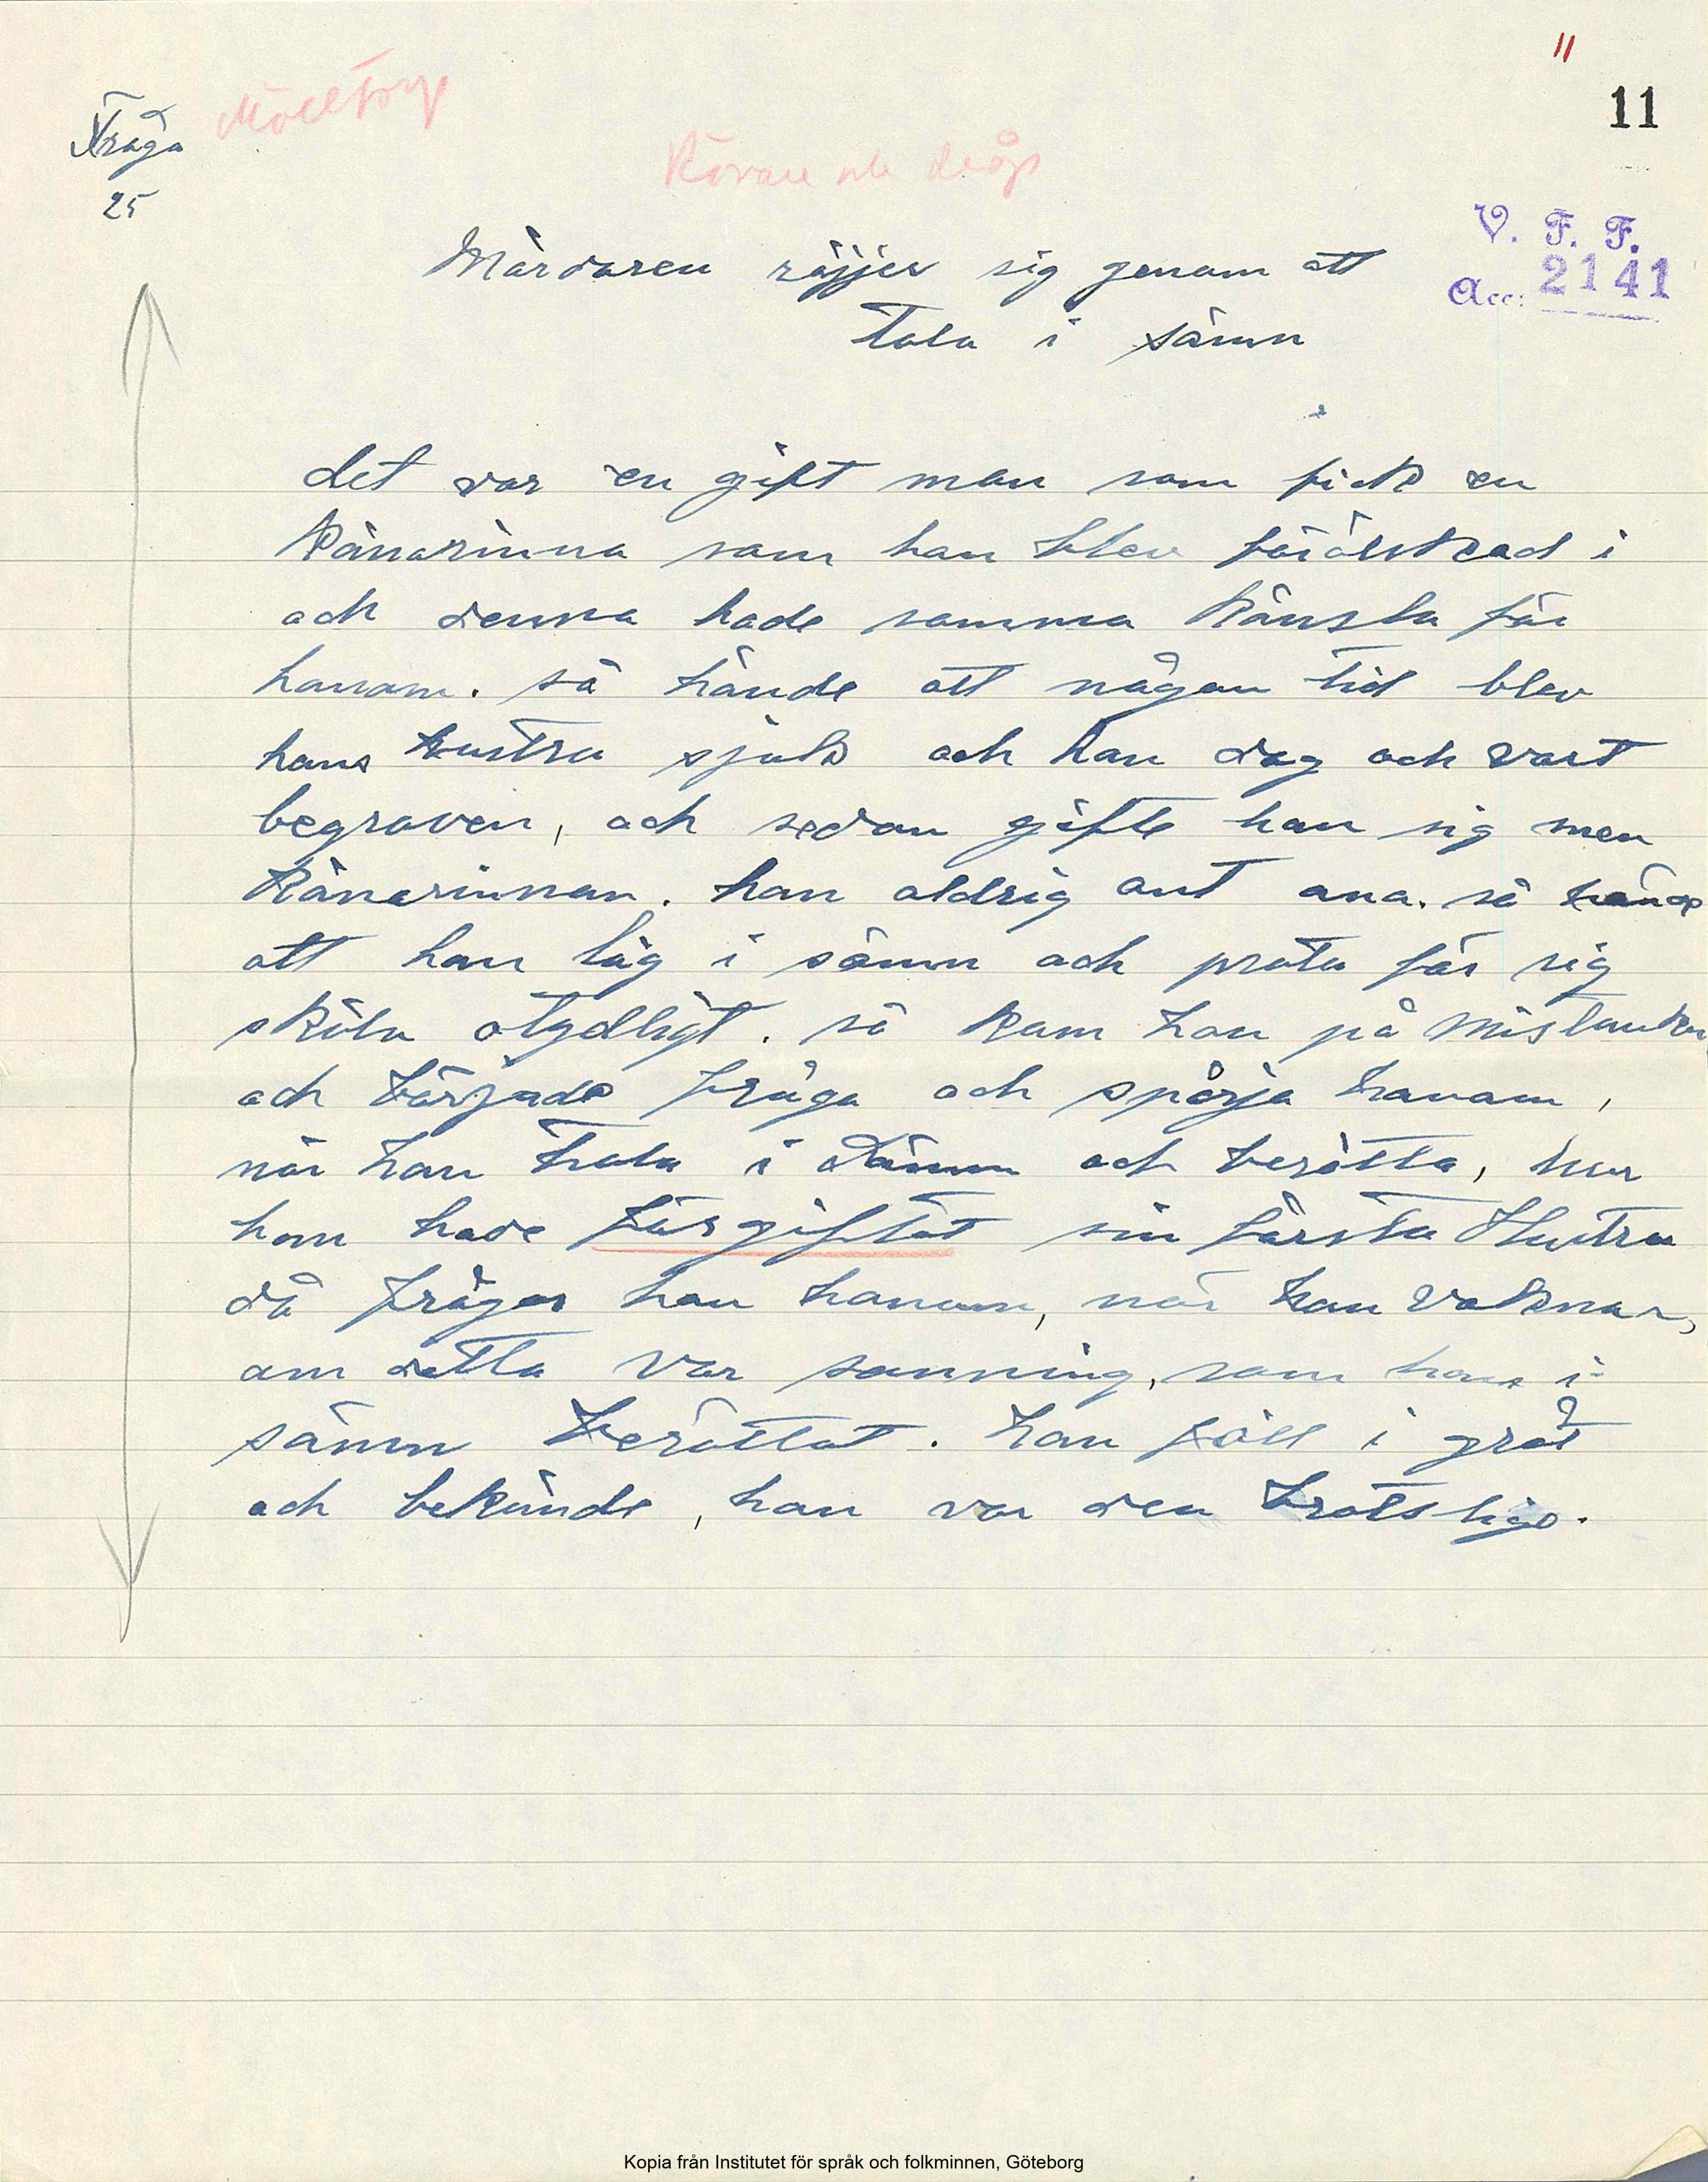 11
11
Fråga
25
Mölltorp
Rövare och dråp
V. F. F.
Acc: 2141
Mördaren röjjer sig genom att
tala i sömn
det var en gift man som fick en
Känarinna som han blev förälskad i
och denna hade samma Känsla för
honom. så hände att någon tid blev
hans hustru sjuk och hon dog och vart
begraven, och sedan gifte han sig men
Känarinnan. hon aldrig ont ana. så hände
att han låg i sömn och prata för sig
skölv otydligt. så kom hon på mistankar
och började fråga och spörja honom,
när han tala i sömn och berätta, hur
han hade förgiftat sin första Hustru
då frågar hon honom, när han vaknar,
om detta var sanning, som han i
sömn berättat. han föll i gråt
och bekände, han var den brotslige.
Kopia från Institutet för språk och folkminnen, Göteborg